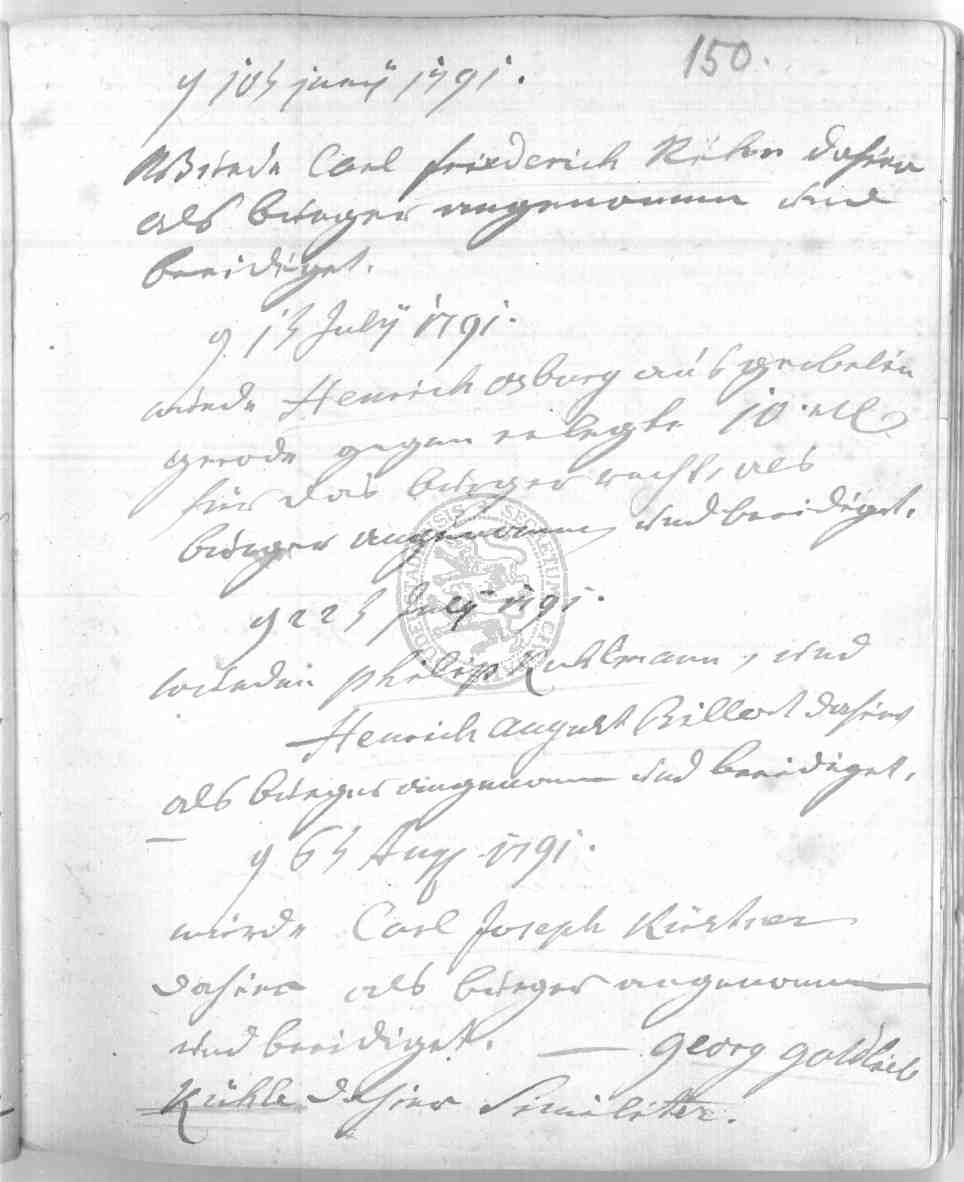 150.
10t Junij 1791.
Wurde Carl Friederich dahier
als bürger angenommen und
beeidiget.
13 Julij 1791.
wurde Henrich Osburg aus
gerode gegen erlegte 10
für das bürger recht, als
bürger angenommen und beeidiget.
22t July 1791.
wurden Philip Kuhlmann, und
Henrich August Billert dahier
als bürger angenommen und beeidiget.
6t Aug 1791.
wurde Carl Joseph Küstner
dahier als bürger angenommen
und beeidiget. — Georg Gottlieb
Kühle dahier Similiter.